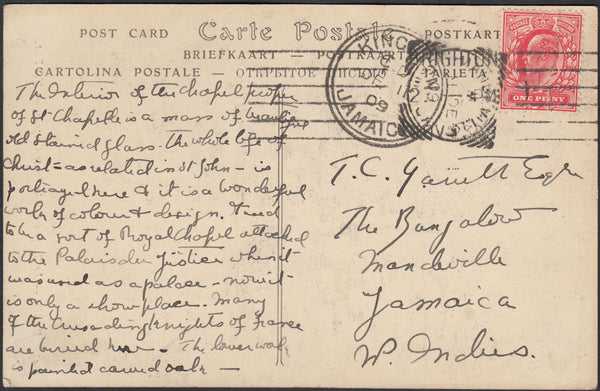 POST CARD Carte Postale POSTKART
BRIEFKAART — POSTKA
CARTOLINA POSTALE — ОТКРЫТОЕ ПИСЬМО TARJETA
KING
DE
09
JAMAIC
BRIGHTON
ONE PENNY
The Interior of the Chapel proper
of St Chapelle is a mass of
old stained glass - the whole life of
Christ - as related in St John - is
portrayed here & it is a wonderful
work of colour & design. It used
to be a sort of Royal Chapel attached
to the Palais de Justice when it
was used as a palace - now it
is only a show place. Many
of the crusading knights of France
are buried here - The lower walk
is painted carved oak -
T.C. Garrett Esqre
The Bungalow
Mandeville
Jamaica
W. Indies.